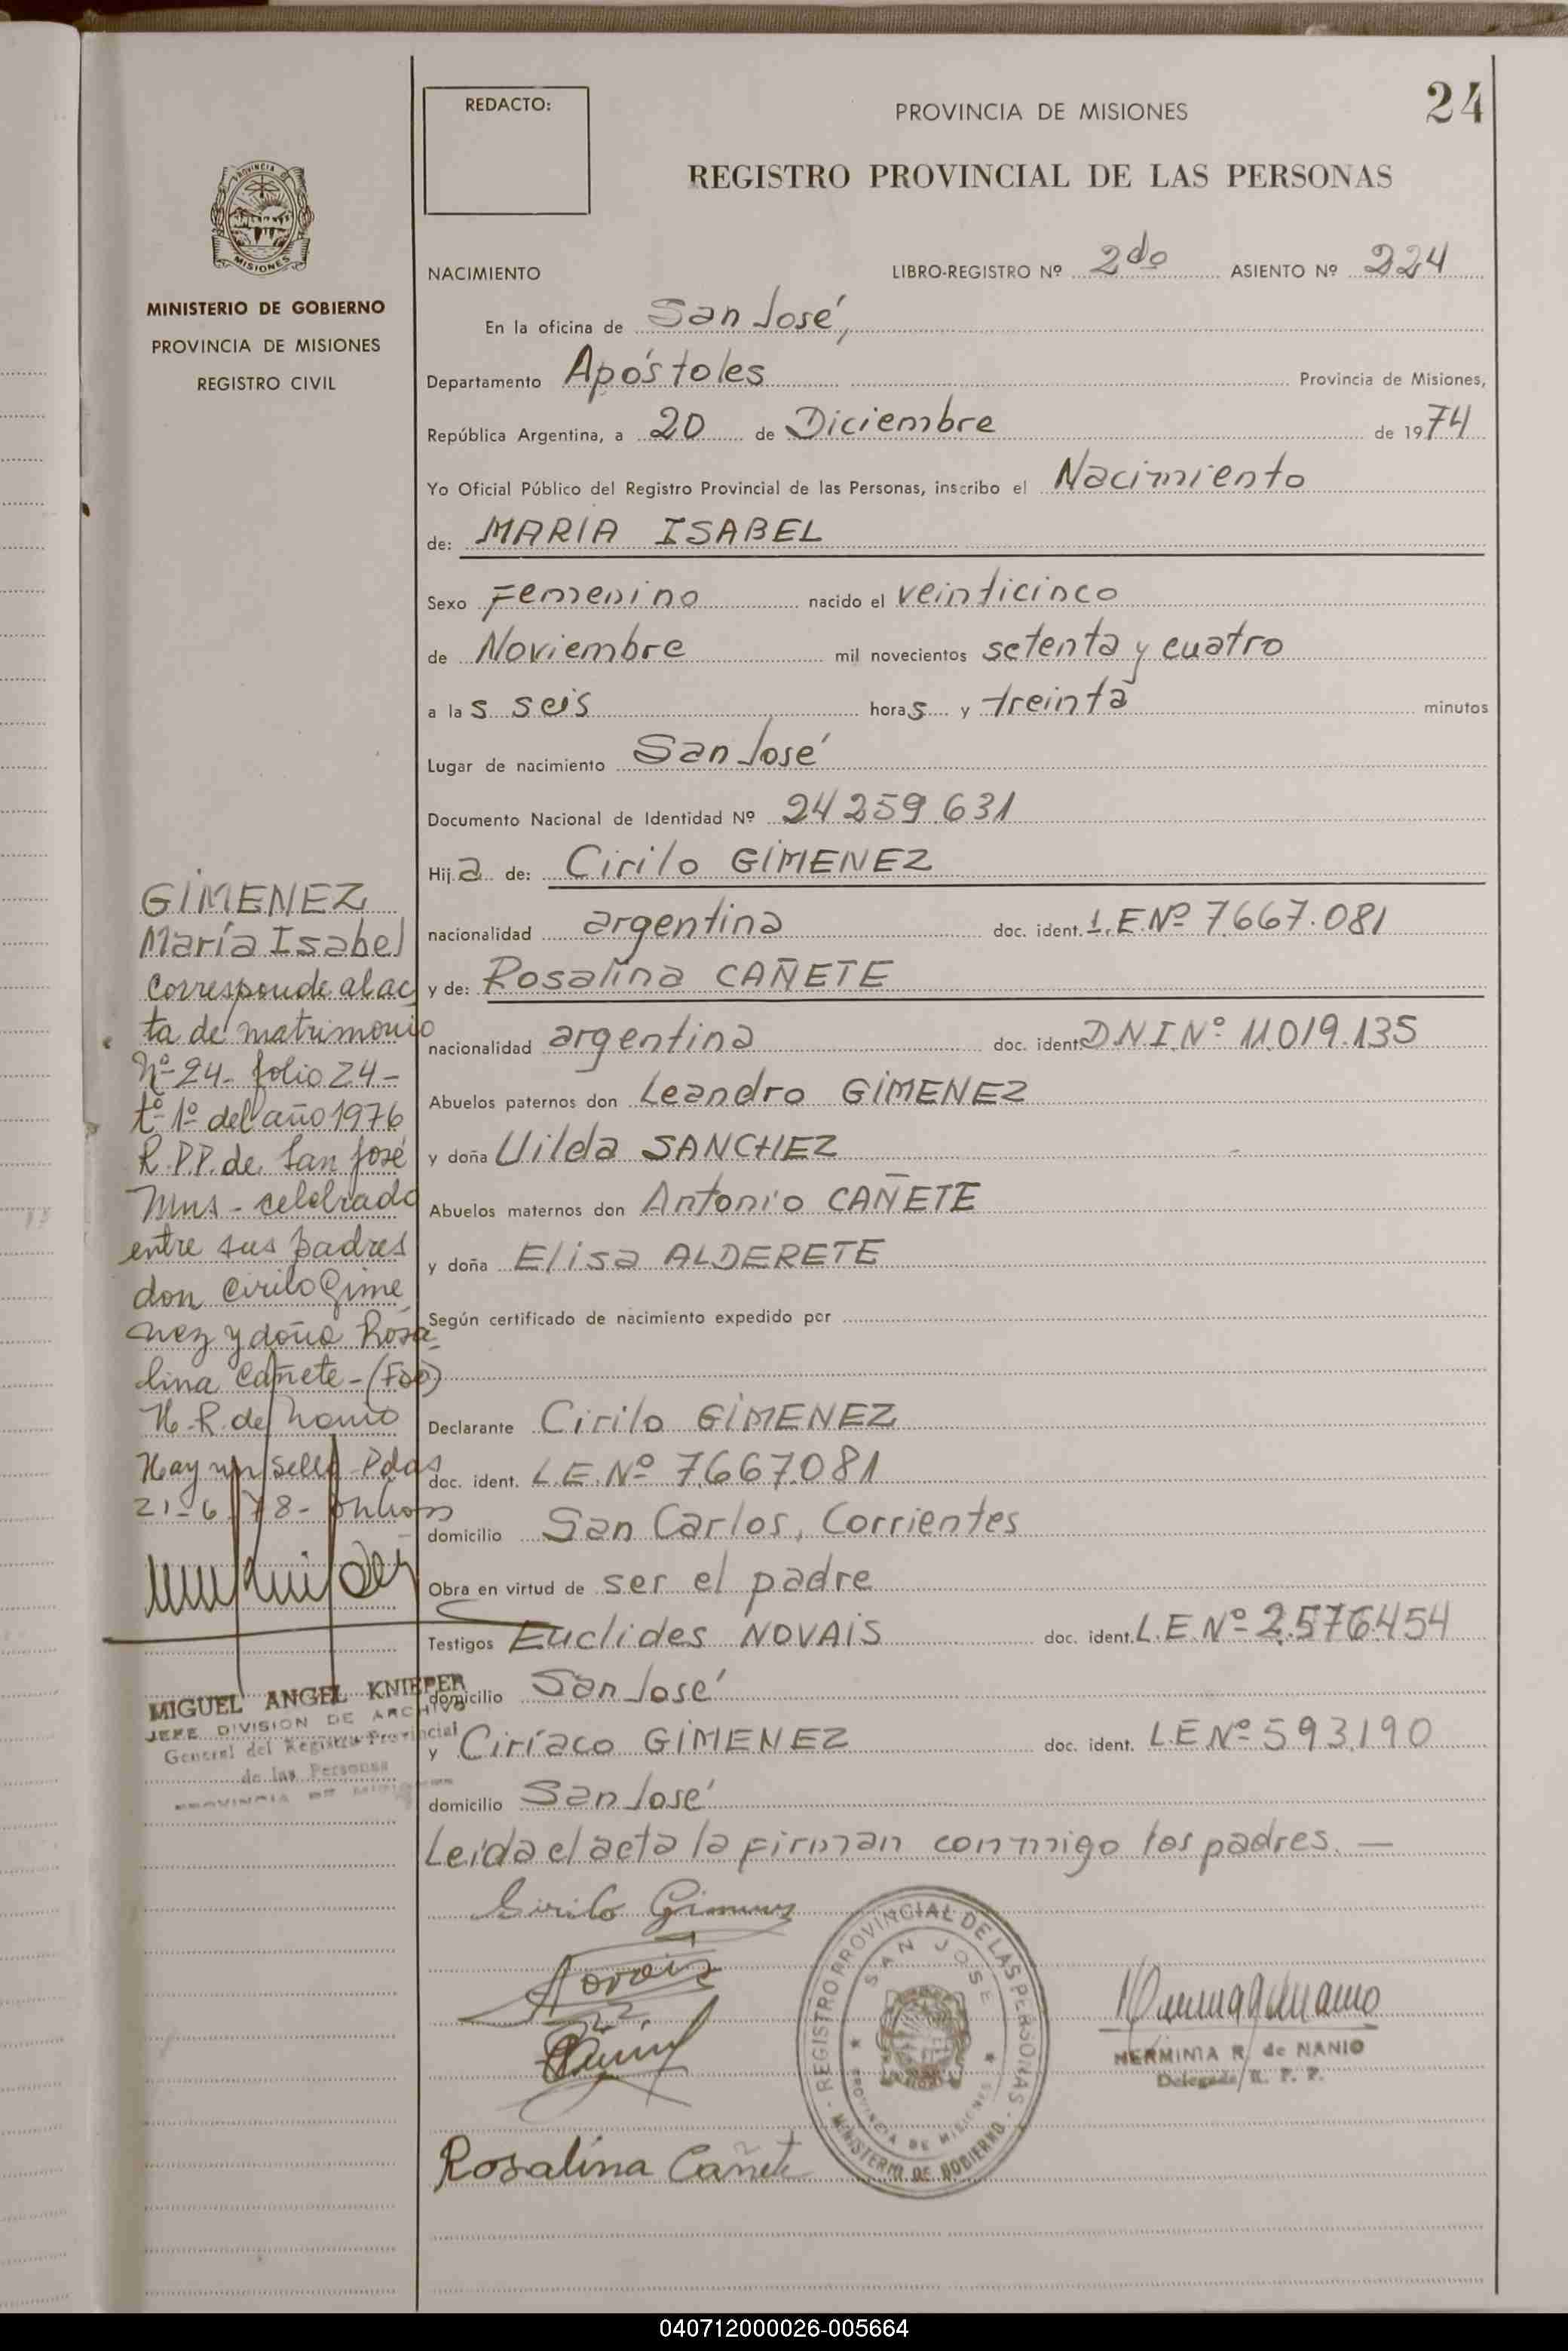 REDACTO:
PROVINCIA DE MISIONES
24
REGISTRO PROVINCIAL DE LAS PERSONAS
PROVINCIA DE
MISIONES
MINISTERIO DE GOBIERNO
PROVINCIA DE MISIONES
REGISTRO CIVIL
NACIMIENTO LIBRO-REGISTRO Nº 2do ASIENTO Nº 224
En la oficina de San José,
Departamento Apóstoles Provincia de Misiones,
República Argentina, a 20 de Diciembre de 1974
Yo Oficial Público del Registro Provincial de las Personas, inscribo el Nacimiento
de: MARIA ISABEL
Sexo Femenino nacido el veinticinco
de Noviembre mil novecientos setenta y cuatro
a las seis horas y treinta minutos
Lugar de nacimiento San José
Documento Nacional de Identidad Nº 24 259.631
Hija de: Cirilo GIMENEZ
nacionalidad argentina doc. ident. L.E.Nº 7.667.081
y de: Rosalina CAÑETE
nacionalidad argentina doc. ident. D.N.I.Nº 11.019.135
Abuelos paternos don Leandro GIMENEZ
y doña Uilda SANCHEZ
Abuelos maternos don Antonio CAÑETE
y doña Elisa ALDERETE
Según certificado de nacimiento expedido por
Declarante Cirilo GIMENEZ
doc. ident. L.E.Nº 7.667.081
domicilio San Carlos, Corrientes
Obra en virtud de ser el padre
Testigos Euclides NOVAIS doc. ident. L.E.Nº 2.576.454
domicilio San José
y Ciríaco GIMENEZ doc. ident. L.E.Nº 593.190
domicilio San José
Leída el acta la firman conmigo los padres. —
Cirilo Gimenez
Novais
Rosalina Cañete
REGISTRO PROVINCIAL DE LAS PERSONAS
SAN JOSE
PROVINCIA DE MISIONES
MINISTERIO DE GOBIERNO
HERMINIA R. de NANIO
Delegada R. P. P.
GIMENEZ
María Isabel
Corresponde al ac
ta de matrimonio
Nº 24 - folio 24 -
tº 1º del año 1976
R.P.P. de San José
Mns - celebrado
entre sus padres
don Cirilo Gime
nez y doña Rosa
lina Cañete - (Fdo)
H. R. de Nanio
Hay un sello - Pdas
21-6-78-
MIGUEL ANGEL KNIEPER
JEFE DIVISION DE ARCHIVO
General del Registro Provincial
de las Personas
PROVINCIA DE MISIONES
040712000026-005664